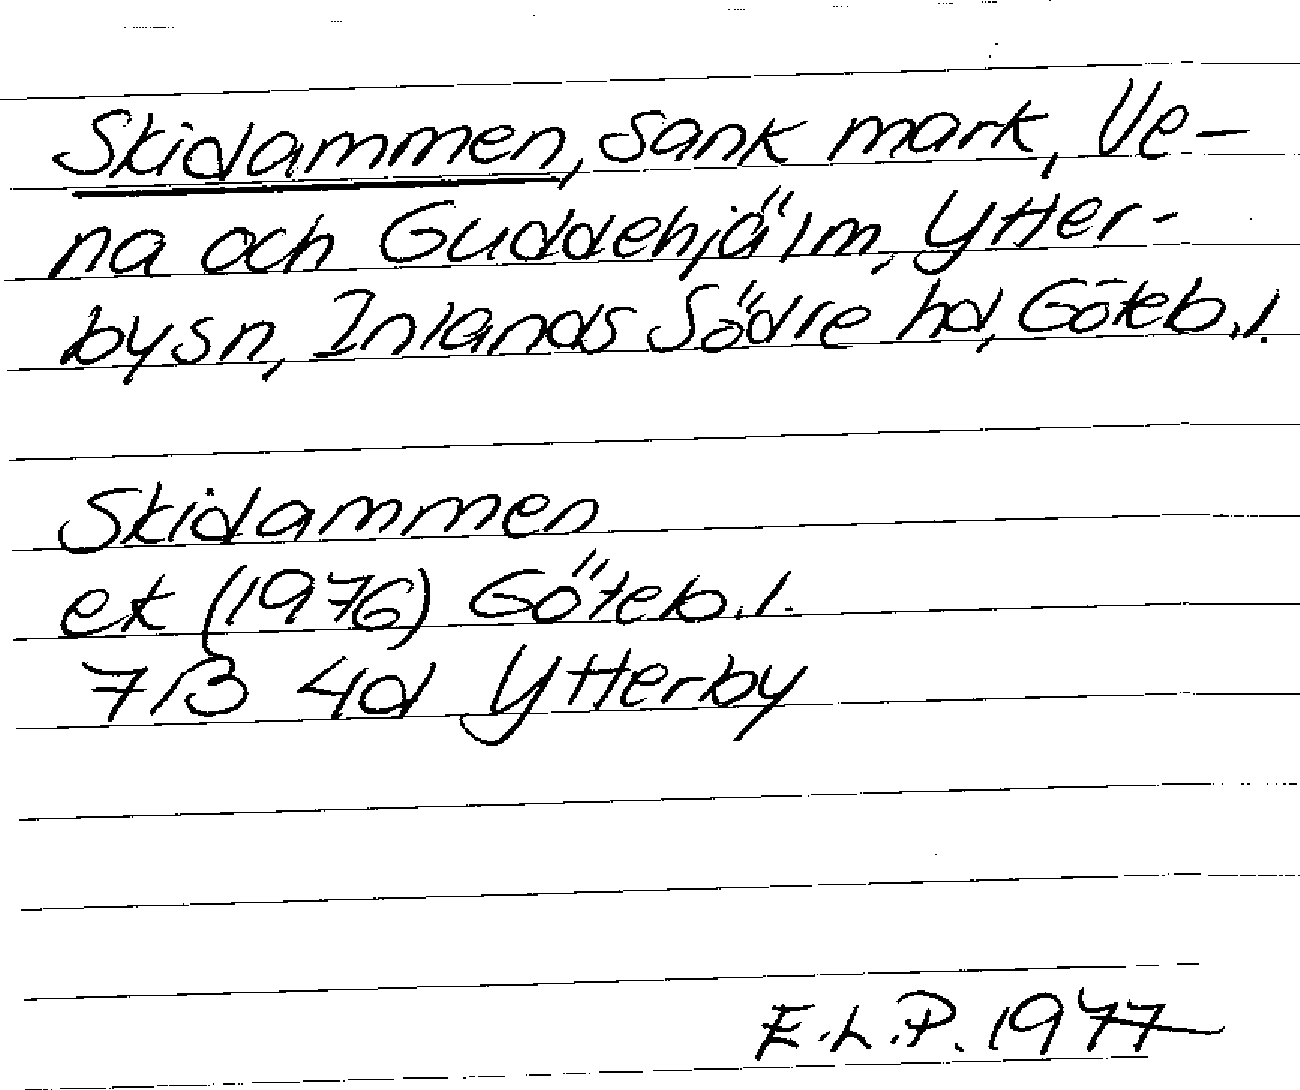 Skidammen, sank mark, Ve-
na och Guddehjälm, Ytter-
bysn, Inlands Södre hd, Göteb.l.
Skidammen
ek (1976) Göteb.l.
7B 4d Ytterby
E.L.P. 1977